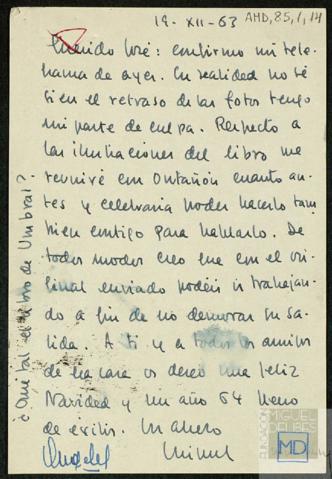 19-XII-63
AMD,85,1,14
Querido José: confirmo mi tele-
grama de ayer. En realidad no sé
si en el retraso de las fotos tengo
mi parte de culpa. Respecto a
las ilustraciones del libro me
reuniré con Ontañón cuanto an-
tes y celebraría poder hacerlo tam
bien contigo para hablarlo. De
todos modos creo que en el ori-
ginal enviado podéis ir trabajan-
do a fin de no demorar su sa-
lida. A ti y a todos los amigos
de esa casa os deseo una feliz
Navidad y un año 64 lleno
de éxitos. Un abrazo
Miguel
¿Qué tal el libro de Umbral?
FUNDACIÓN
MIGUEL
DELIBES
MD